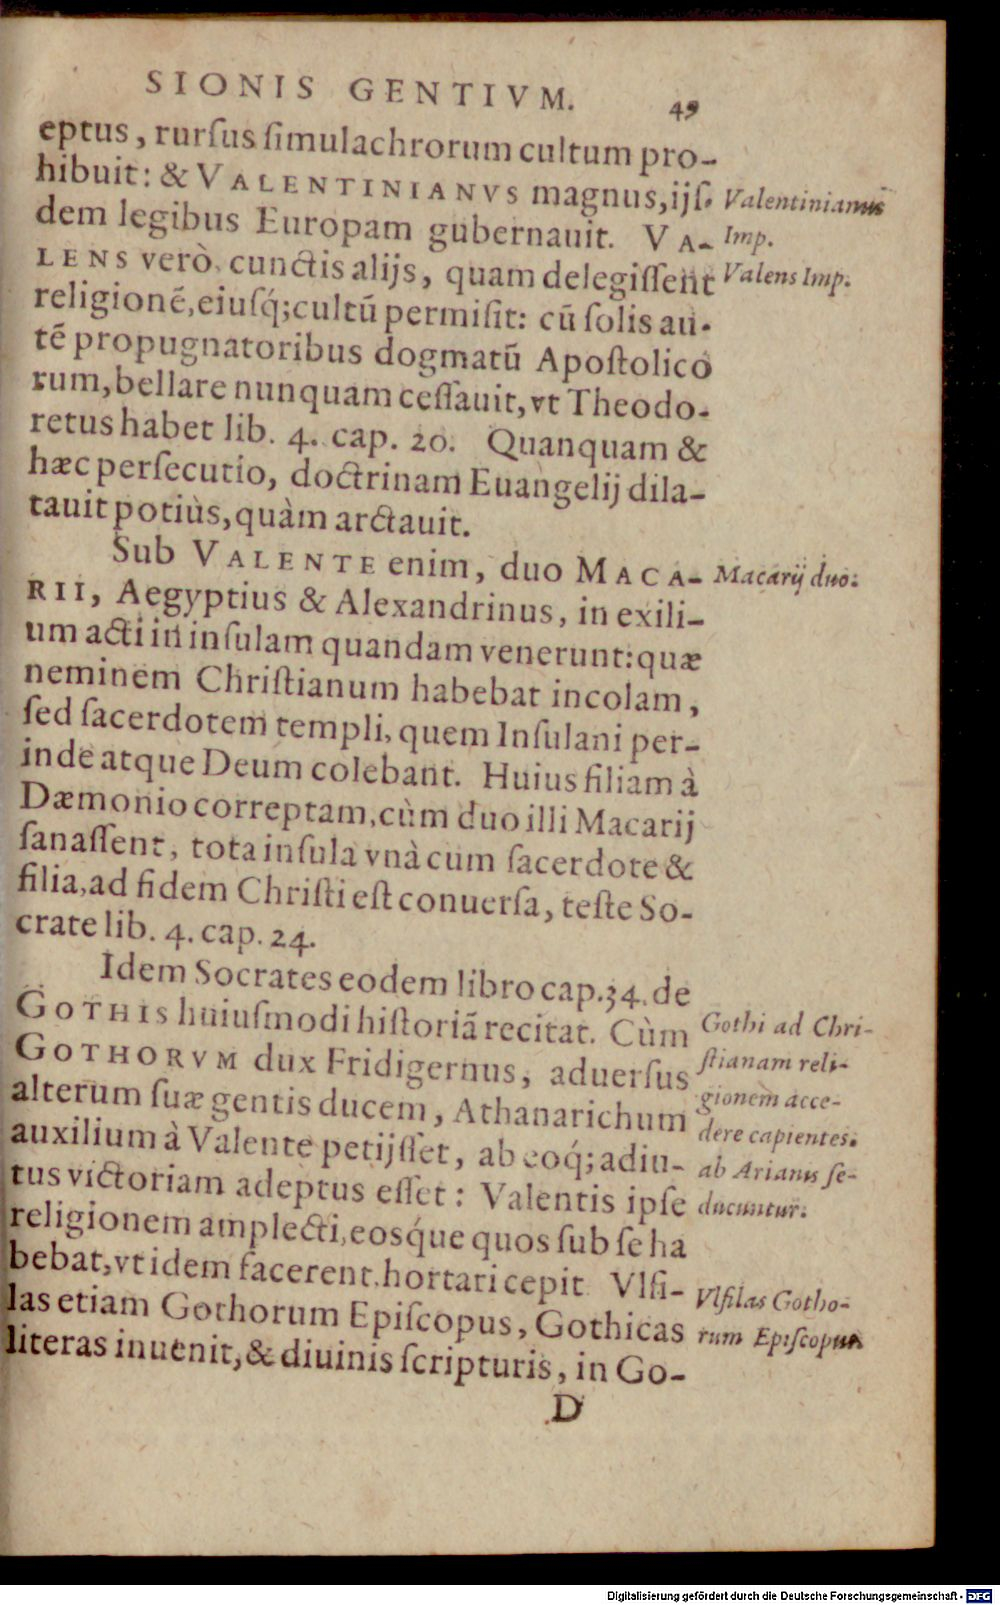 SIONIS GENTIVM. 49
eptus, rurſus ſimulachrorum cultum pro-
hibuit: & VALENTINIANVS magnus, ijſ-
dem legibus Europam gubernauit. VA-
LENS verò cunctis alijs, quam delegiſſent
religionē, eiuſq́; cultū permiſit: cū ſolis au-
tē propugnatoribus dogmatū Apoſtolico
rum, bellare nunquam ceſſauit, vt Theodo-
retus habet lib. 4. cap. 20. Quanquam &
hæc perſecutio, doctrinam Euangelij dila-
tauit potiùs, quàm arctauit.
Sub VALENTE enim, duo MACA-
RII, Aegyptius & Alexandrinus, in exili-
um acti in inſulam quandam venerunt: quæ
neminem Chriſtianum habebat incolam,
ſed ſacerdotem templi, quem Inſulani per-
inde atque Deum colebant. Huius filiam à
Dæmonio correptam, cùm duo illi Macarij
ſanaſſent, tota inſula vnà cum ſacerdote &
filia, ad fidem Chriſti eſt conuerſa, teſte So-
crate lib. 4. cap. 24.
Idem Socrates eodem libro cap. 34. de
GOTHIS huiuſmodi hiſtoriā recitat. Cùm
GOTHORVM dux Fridigernus, aduerſus
alterum ſuæ gentis ducem, Athanarichum
auxilium à Valente petijſſet, ab eoq́; adiu-
tus victoriam adeptus eſſet: Valentis ipſe
religionem amplecti, eosq́ue quos ſub ſe ha
bebat, vt idem facerent, hortari cepit. Vlfi-
las etiam Gothorum Epiſcopus, Gothicas
literas inuenit, & diuinis ſcripturis, in Go-
D
Valentinianus
Imp.
Valens Imp.
Macarij duo.
Gothi ad Chri-
ſtianam reli-
gionem acce-
dere capientes.
ab Arianis ſe-
ducuntur.
Vlfilas Gotho-
rum Epiſcopus
Digitalisierung gefördert durch die Deutsche Forschungsgemeinschaft - DFG